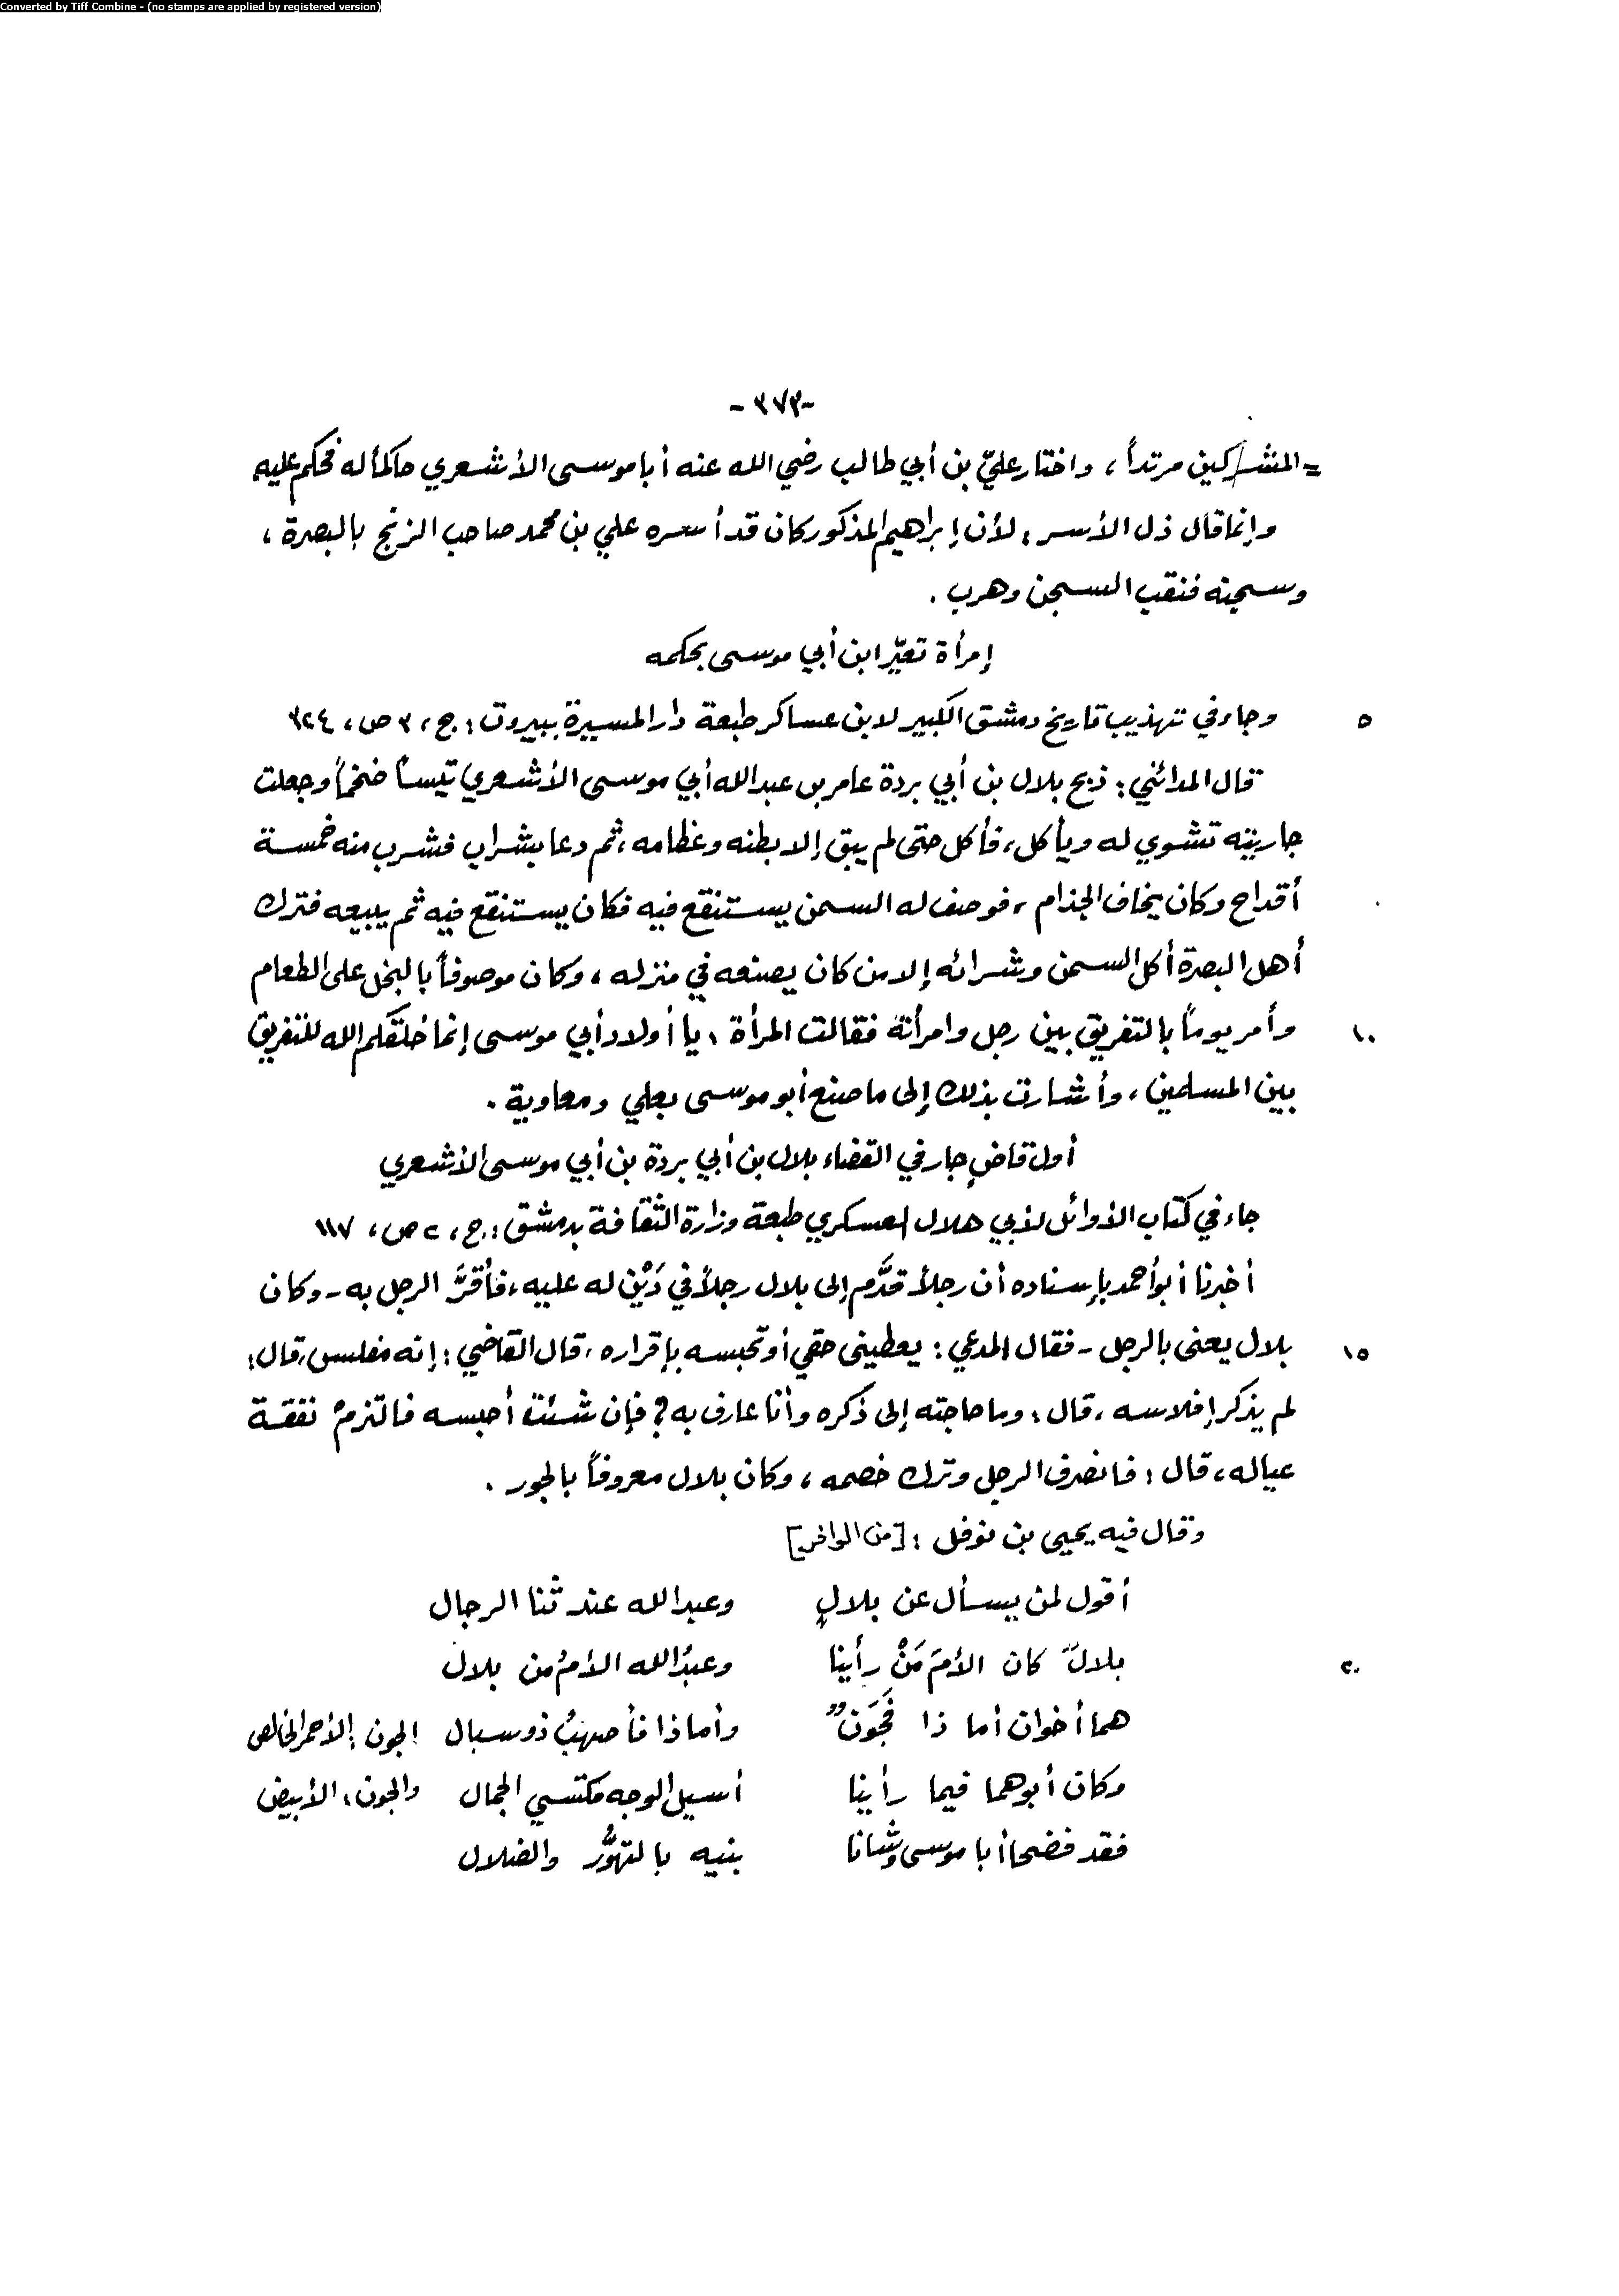 Converted by Tiff Combine - (no stamps are applied by registered version)
-٣٧٣-
= المشركين مرتداً ، واختار عليّ بن أبي طالب رضي الله عنه أبا موسى الأشعري حاكماً له فحكم عليه
وإنما قال ذل الأسر ، لأن إبراهيم المذكور كان قد أسره علي بن محمد صاحب الزنج بالبصرة ،
وسجنه فنقب السجن وهرب .
إمرأة تعيّر ابن أبي موسى بحكمه
٥ وجاء في تهذيب تاريخ دمشق الكبير لابن عساكر طبعة دار المسيرة ببيروت : ج ، ٣ ص ، ٣٢٤
قال المدائني : ذبح بلال بن أبي بردة عامر بن عبدالله أبي موسى الأشعري تيساً ضخماً وجعلت
جاريته تشوي له ويأكل ، فأكل حتى لم يبق إلا بطنه وعظامه ، ثم دعا بشراب فشرب منه خمسة
أقداح وكان يخاف الجذام ، فوصف له السمن يستنقع فيه فكان يستنقع فيه ثم يبيعه فترك
أهل البصرة أكل السمن وشرائه إلا من كان يصنعه في منزله ، وكان موصوفاً بالبخل على الطعام
١٠ وأمر يوماً بالتفريق بين رجل وامرأته فقالت المرأة ، يا أولاد أبي موسى إنما خلقكم الله للتفريق
بين المسلمين ، وأشارت بذلك إلى ما صنع أبو موسى بعلي ومعاوية .
أول قاضٍ جار في القضاء بلال بن أبي بردة بن أبي موسى الأشعري
جاء في كتاب الأوائل لأبي هلال العسكري طبعة وزارة الثقافة بدمشق : ج ، ٢ ص ، ١١٧
أخبرنا أبو أحمد بإسناده أن رجلاً قدَّم إلى بلال رجلاً في دَيْن له عليه ، فأقرَّ الرجل به - وكان
١٥ بلال يعنى بالرجل - فقال المدعي : يعطيني حقي أو تحبسه بإقراره ، قال القاضي : إنه مفلس ، قال :
لم يذكر إفلاسه ، قال : وما حاجته إلى ذكره وأنا عارف به ؟ فإن شئت أحبسه فالتزمْ نفقة
عياله ، قال : فانصرف الرجل وترك خصمه ، وكان بلال معروفاً بالجور .
وقال فيه يحيى بن نوفل : [من الوافر]
أقول لمن يسأل عن بلالٍ وعبدالله عند ثنا الرجال
٢٠ بلالٌ كان الأمَ مَنْ رأينا وعبدُالله الأمُ من بلال
هما أخوان أما ذا فَجَوَنٌ وأما ذا فأصهبُ ذو سبال الجون : الأحمر الخالص
وكان أبوهما فيما رأينا أسيل الوجه مكتسي الجمال والجون ، الأبيض
فقد فضحا أبا موسى وشانا بنيه بالتهوُّر والضلال